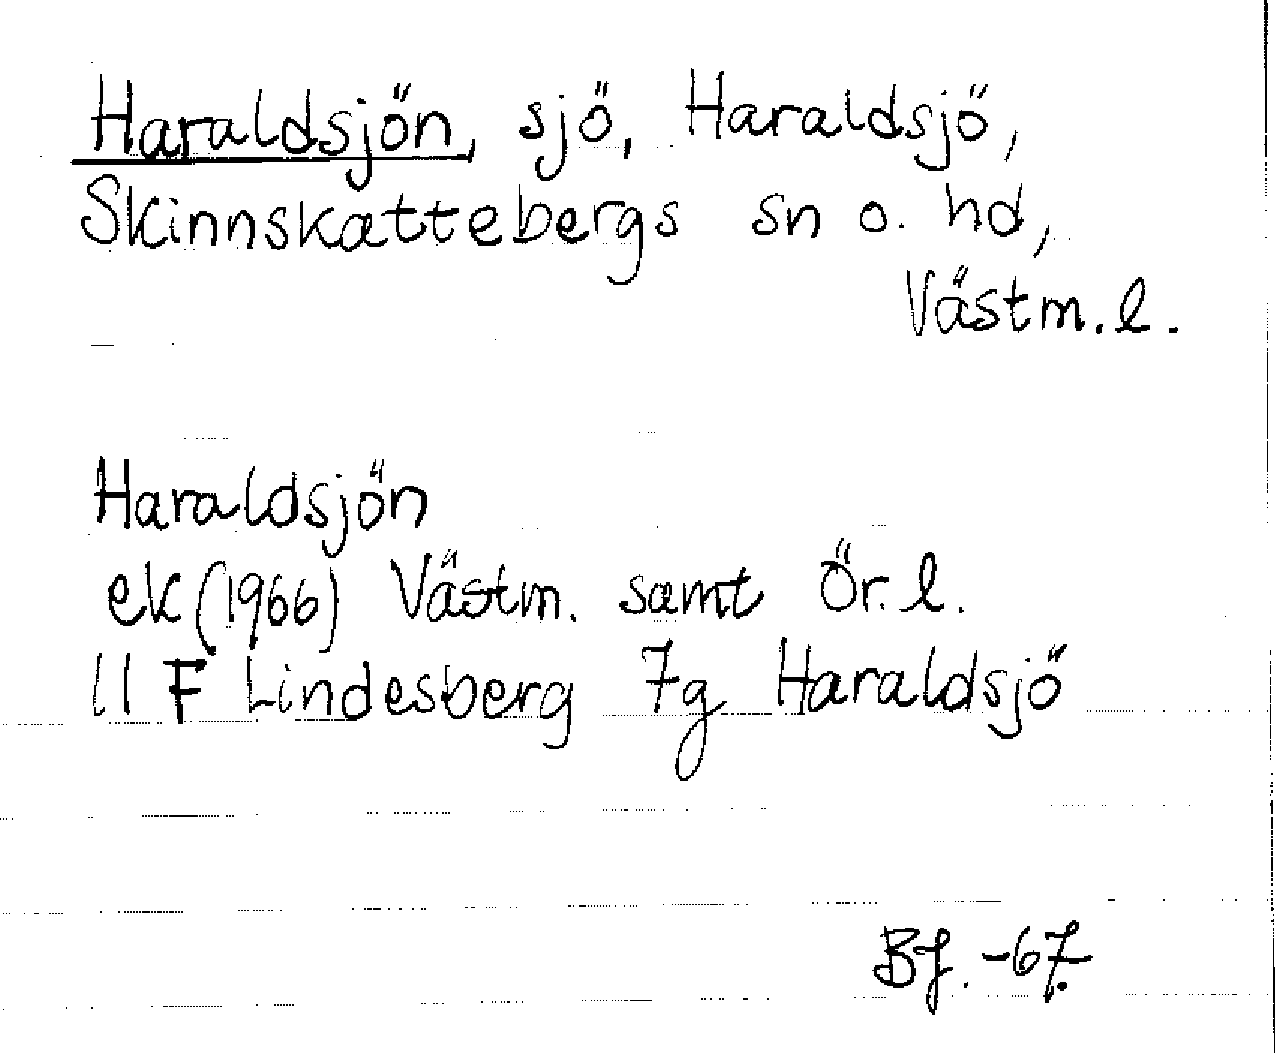 Haraldsjön, sjö, Haraldsjö,
Skinnskattebergs sn o. hd,
Västm. l.
Haraldsjön
ek (1966) Västm. samt Ör. l.
11 F Lindesberg 7g Haraldsjö
BJ. -67.